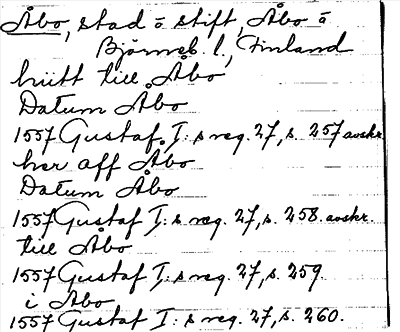 Åbo, stad o stift, Åbo o
Björneb. l., Finland
hiitt till Åbo
Datum Åbo
1557 Gustaf I:s reg. 27, s. 257 avskr.
her aff Åbo
Datum Åbo
1557 Gustaf I:s reg. 27, s. 258 avskr.
till Åbo
1557 Gustaf I:s reg. 27, s. 259.
i Åbo
1557 Gustaf I:s reg. 27, s. 260.